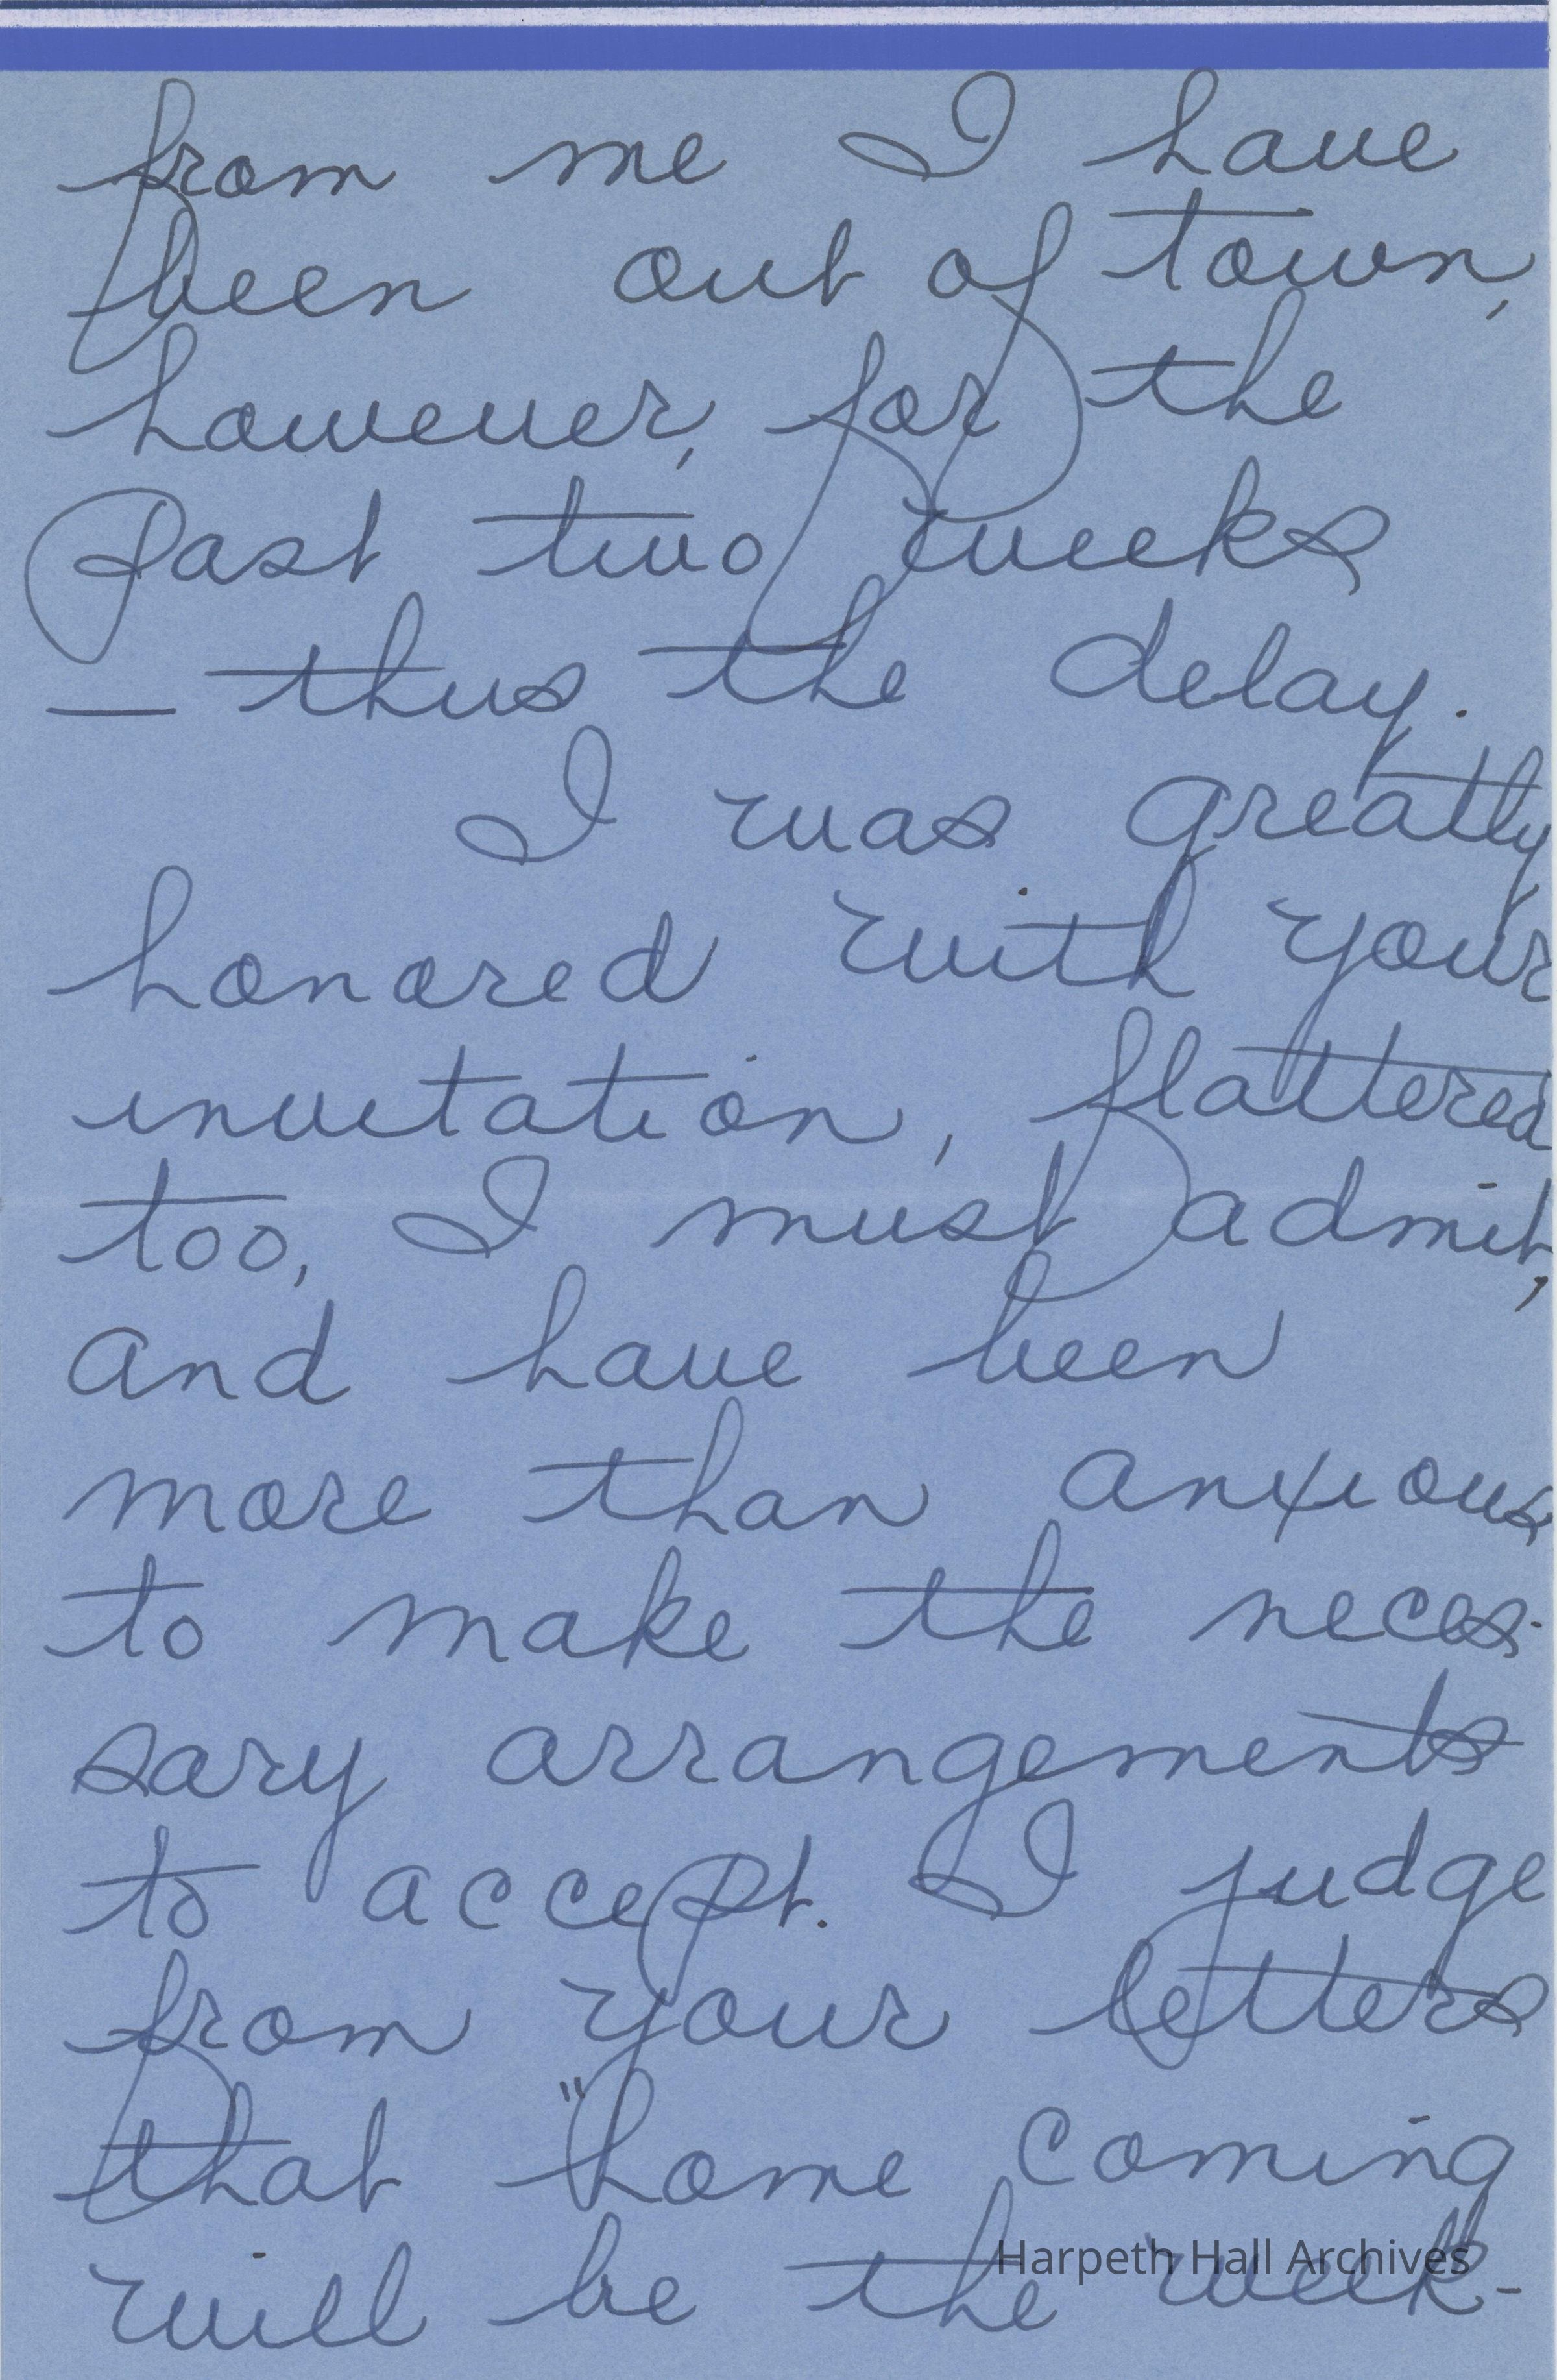 from me I have
been out of town,
however, for the
past two weeks
— thus the delay.
I was greatly
honored with your
invitation, flattered
too, I must admit,
and have been
more than anxious
to make the neces-
sary arrangements
to accept. I judge
from your letters
that "home coming
will be the week-
Harpeth Hall Archives